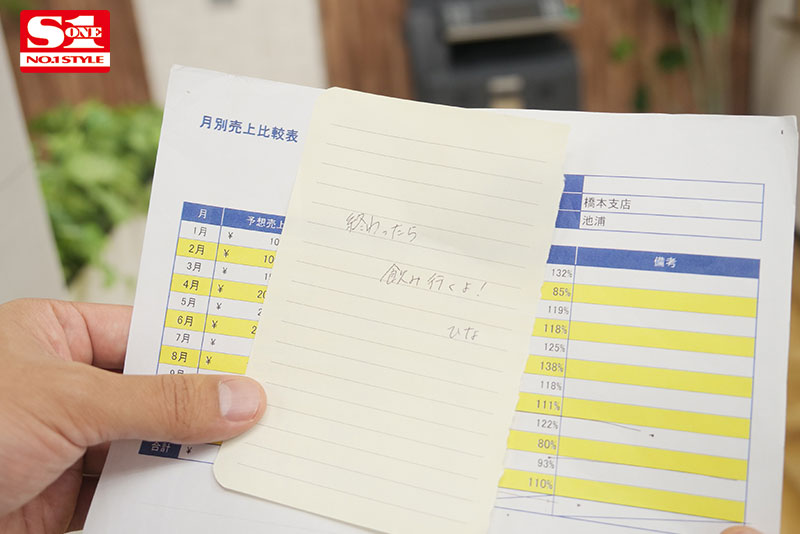 S1 ONE
NO.1 STYLE
月別売上比較表
橋本支店
池浦
月 予想売上
備考
1月 ¥ 10
132%
2月 ¥ 10
85%
3月 ¥ 15
119%
4月 ¥ 20
118%
5月 ¥
125%
6月 ¥ 2
138%
7月 ¥
118%
8月 ¥
111%
122%
80%
93%
110%
合計 ¥
終わったら
飲み行くよ!
ひな